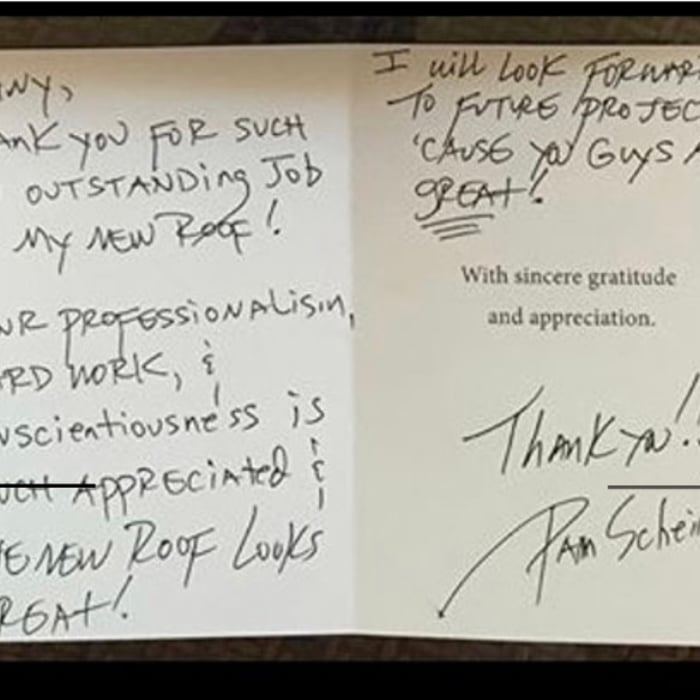 NNY,
ANK YOU FOR SUCH
OUTSTANDING JOB
MY NEW ROOF!
UR PROFESSIONALISM,
RD WORK, &
NSCIENTIOUSNESS IS
UCH APPRECIATED &
E NEW ROOF LOOKS
REAT!
I WILL LOOK FORWAR
TO FUTURE PROJEC
'CAUSE YOU GUYS A
GREAT!
With sincere gratitude
and appreciation.
THANK YOU!!
PAM Schei